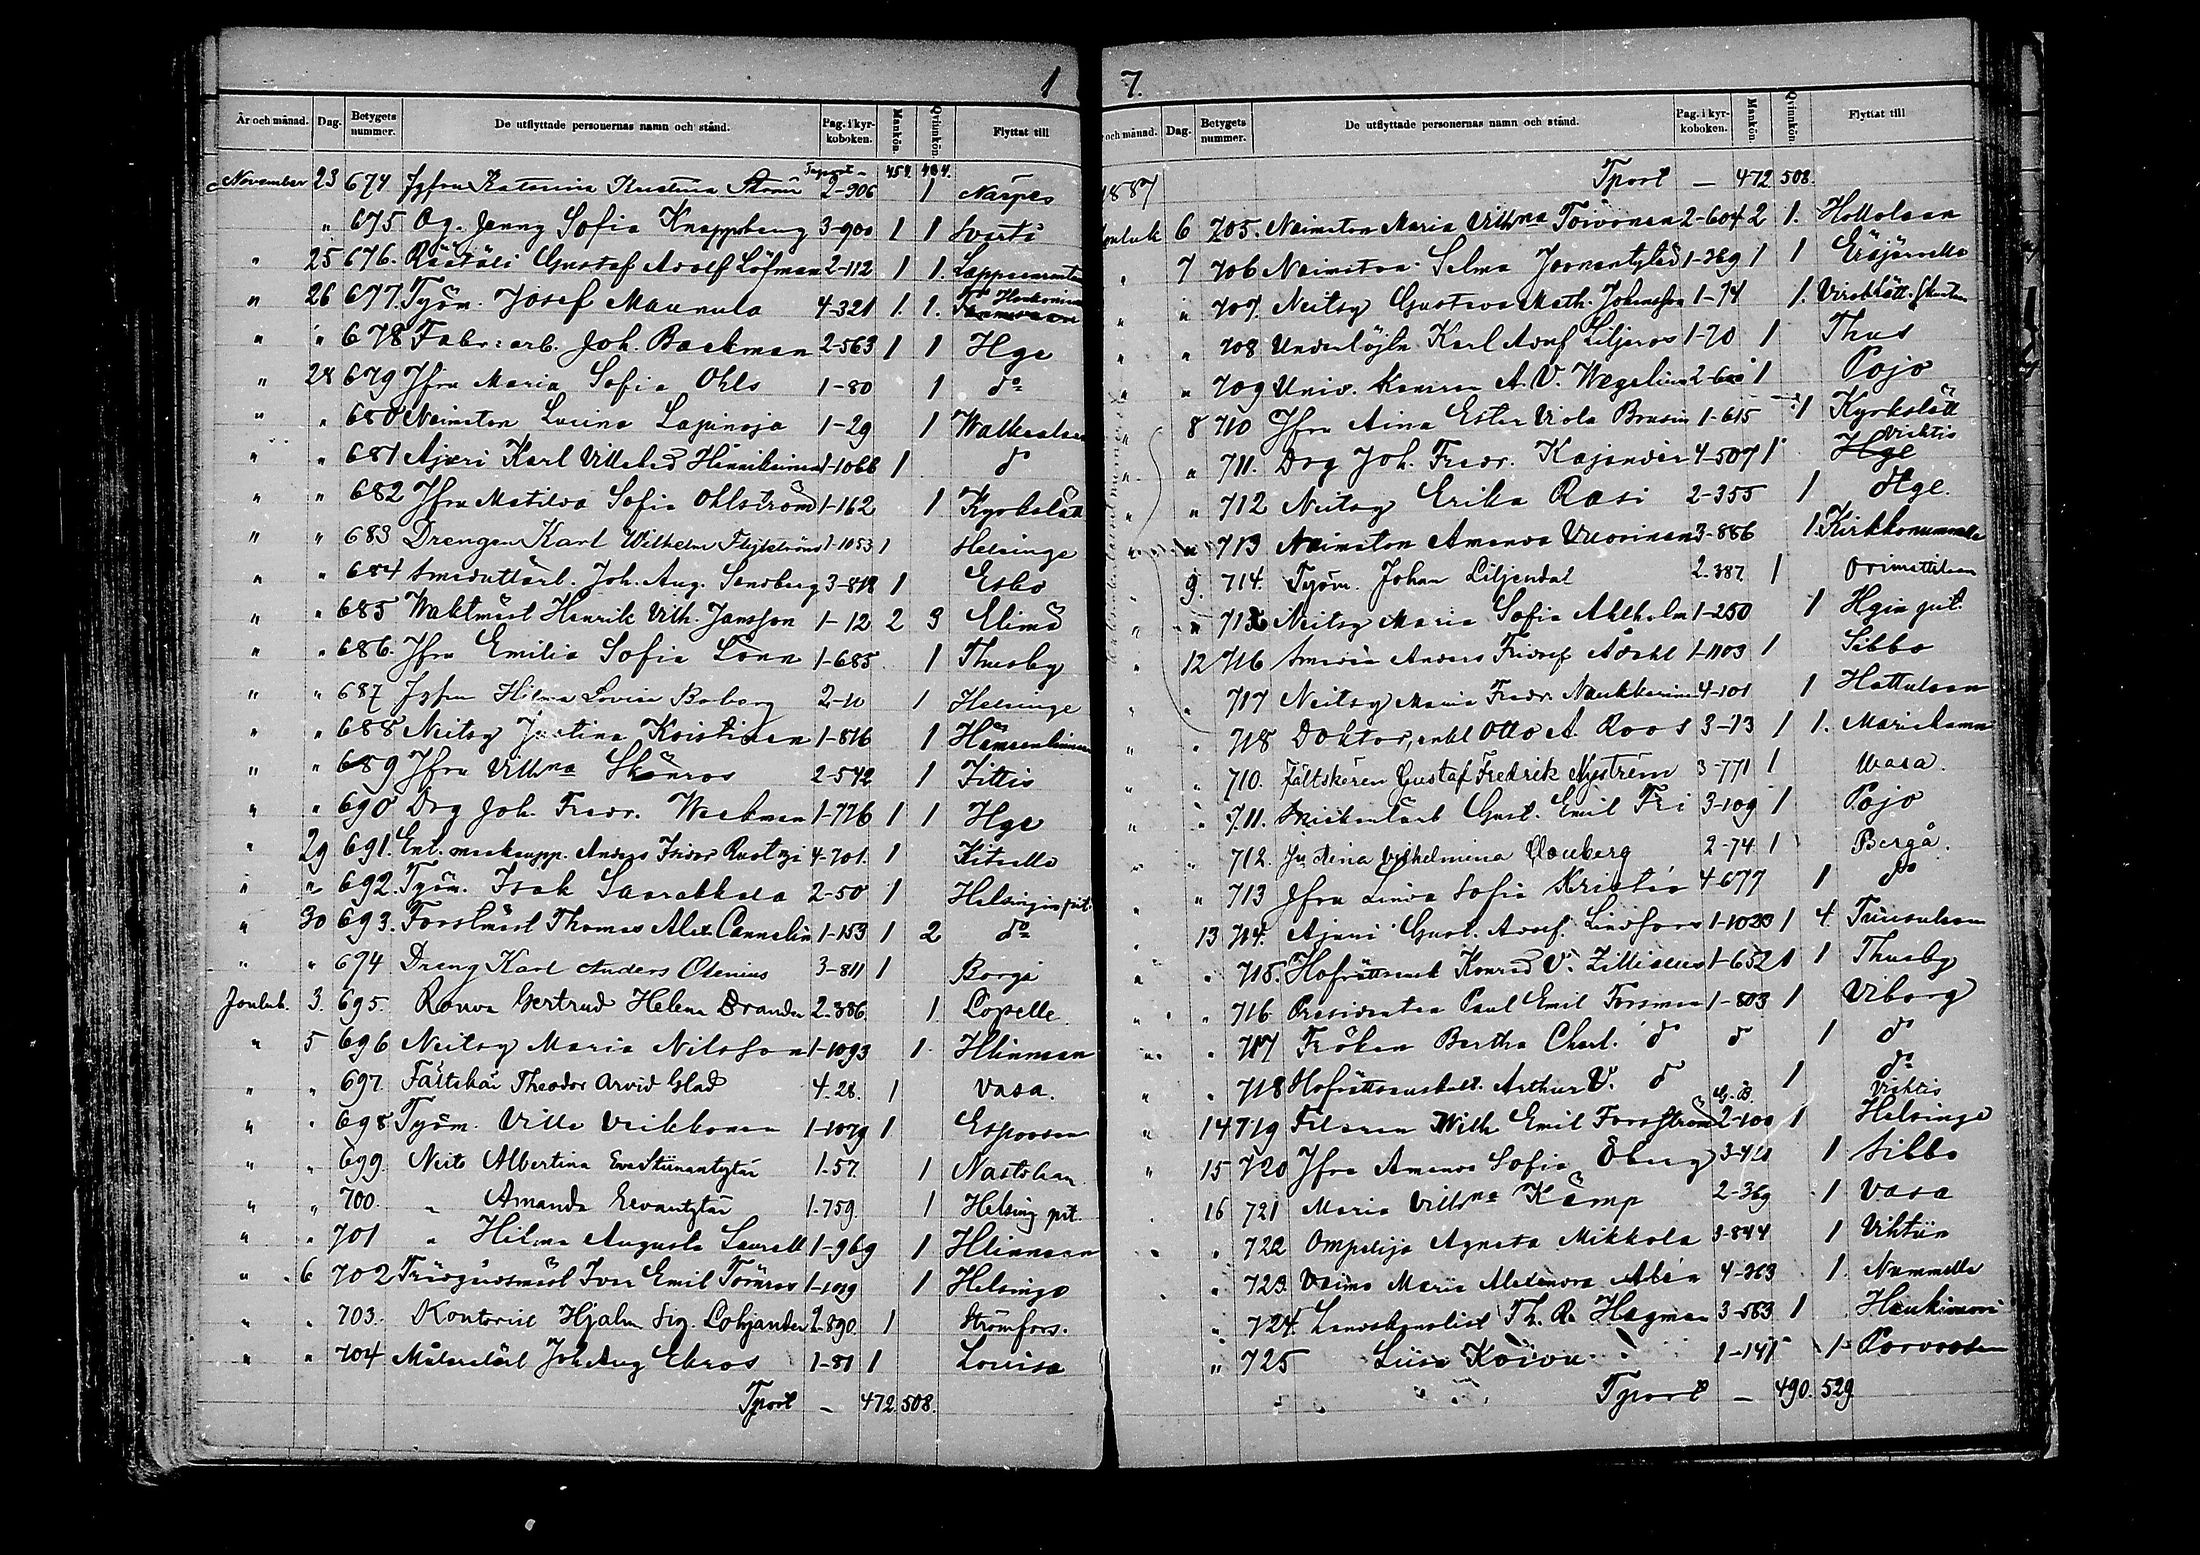 1
År och månad. Dag. Betygets nummer. De utflyttade personernas namn och stånd. Pag. i kyrkoboken. Mankön. Qvinnkön. Flyttat till
Tnsport — 454. 484.
November 23 674 Jgfru Katarina Kristina Ström 2-906 1 Närpes
" 675 Og. Jenny Sofia Knappsberg 3-900 1 1 Svartå
" 25 676. Räätäli Gustaf Adolf Löfman 2-112 1 1.
" 26 677. Työm. Josef Maunula 4-321 1. 1.
" " 678 Fabr: arb. Joh. Backman 2-563 1 1 Hge
" 28 679 Jfru Maria Sofia Ohls 1-80 1 do
" " 680 Naimaton Lovina Lapinoja 1-29 1 Walkealaan
" " 681 Ajuri Karl Villehad Heinikainen 1-1066 1 do
" " 682 Jfru Matilda Sofia Ohlström 1-162 1 Kyrkslätt
" " 683 Drengen Karl Wilhelm 1-1053 1 Helsinge
" " 684 Smeduttärl. Joh. Aug. Sandberg 3-818 1 Esbo
" " 685 Waktmäst Henrik Vilh. Jansson 1-12 2 3 Elimä
" " 686. Jfru Emilia Sofia Lönn 1-685 1 Thusby
" " 687 Jgfru Hilma Lovisa Boborg 2-10 1 Helsinge
" " 688 Neitsy Justina Koistinen 1-816 1 Hämeenlinnaan
" " 689 Jfru Vilhna Skönros 2-542 1 Sittis
" " 690 Drg Joh. Fredr. Weckman 1-776 1 1 Hge
" 29 691. Anders Isidor 4-701. 1 Kitsella
" " 692. Työm. Isak Saarakkala 2-50 1 Helsingin pit.
" 30 693. Forstmäst Thomas Alex. Cannelin 1-153 1 2 do
" " 694 Dreng Karl Anders Olenius 3-811 1 Borgå
Jouluk. 3. 695. Rouva Gertrud Helena Brander 2-386. 1 Lopelle.
" 5 696 Neitsy Maria Nilsson 1-1093 1. Hlinnaan
" " 697. Fältskär Theodor Arvid Glad 4-28. 1 Vasa.
" " 698 Työm. Ville Veikkonen 1-1079 1 Espooseen
" " 699. Neito Albertina Eva Stiinantytär 1-57. 1 Nastolaan
" " 700. " Amanda Eevantytär 1-759. 1 Helsing pit.
" " 701 " Hilma Augusta Laurell 1-969 1 Hlinnaan
" 6 702 Trädgårdsmäst Ivar Emil Törnros 1-1019 1 Helsinge
" " 703. Kontorist Hjalm. Sig. Lohjander 2-890. 1 Strömfors.
" " 704 Målarelärl Joh. Aug Ekros 1-81 1 Lovisa
Tport — 472. 508.
7.
och månad. Dag. Betygets nummer. De utflyttade personernas namn och stånd. Pag. i kyrkoboken. Mankön. Qvinnkön. Flyttat till
1887 Tport — 472 508.
Jouluk 6 705. Naimaton Maria Vilhna Toivonen 2-604 2 1. Hollolaan
" 7 706 Naimaton Selma Joonantytär 1-369 1 1 Eräjärvelle
" " 707 Neitsy Gustava Math. Johansson 1-74 1.
" " 708 Underlöjtn Karl Adolf Liljeros 1-70 1 Thus
" " 709 Univ. Kamrer A. V. Wegelius 2-600 1 Pojo
" 8 710 Jfru Aina Ester Viola Brusin 1-615 1 Kyrkslätt
" " 711. Drg Joh. Fredr. Kajander 4-507 1 Hge Vichtis
" " 712 Neitsy Erika Rasi 2-355 1 Hge.
" " 713 Naimaton Amanda Vuorinen 3-886 1. Kirkkonummelle
" 9. 714. Työm. Johan Liljendal 2-387. 1 Orimattilaan
" " 715 Neitsy Maria Sofia Ahlholm 1-250 1 Hgin pit.
" 12 716 Smeden Anders Fridolf Ådahl 1-1103 1 Sibbo
" " 717 Neitsy Maria Fredr. Naukkarinen 4-101 1 Hattulaan
" " 718 Doktor, enkl Otto A. Roos 3-13 1 1. Mariehamn
" " 710. Fältskären Gustaf Fredrik Nyström 3-771 1 Wasa.
" " 711. Snickarlärl Gust. Emil Fri 3-109 1 Pojo
" " 712. Justina Vilhelmina Qvarberg 2-74 1 Borgå.
" " 713 Jfru Linda Sofia Kristén 4-677 1 do
" 13 714. Ajuri Gust. Adolf Lindfors 1-1023 1 4. Tuusulaan
" " 715. Hofrättsausk Konrad V. Zilliacus 1-652 1 1 Thusby
" " 716. Presidenten Paul Emil Forsman 1-803 1 Viborg
" " 717 Fröken Bertha Charl. do do 1 do
" " 718 Hofrättsauskult. Arthur V. do 1 do
" 14 719 Filaren Wilh Emil Forsström 2-100 1 Helsinge Vichtis
" 15 720 Jfru Amanda Sofia Öberg 3-411 1 Sibbo
16 721 Maria Vilhna Kämp 2-369 1 Vasa
" " 722 Ompelija Agneta Mikkola 3-844 1 Vihtiin
" " 723. Vaimo Maria Alexandra Alén 4-363 1. Nummelle
" 724. Landskanslist Th. R. Hagman 3-563 1 Haukivuori
" 725 Liisa Koivu 1-141 1 Porvooseen
Tport — 490. 529